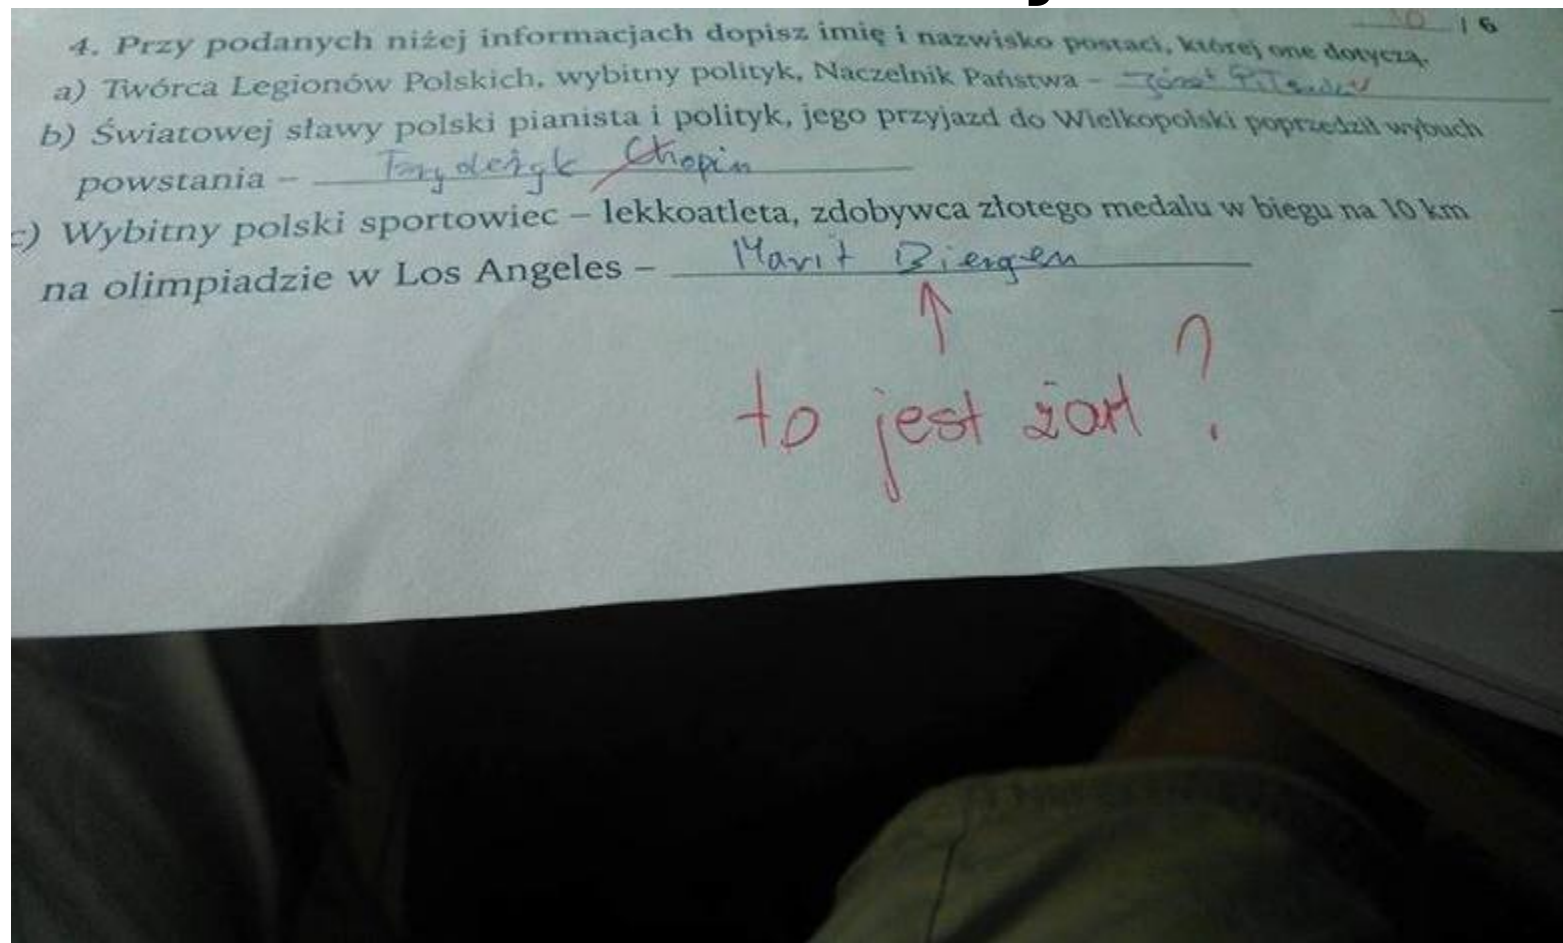 / 6
4. Przy podanych niżej informacjach dopisz imię i nazwisko postaci, której one dotyczą.
a) Twórca Legionów Polskich, wybitny polityk, Naczelnik Państwa – Józef
b) Światowej sławy polski pianista i polityk, jego przyjazd do Wielkopolski poprzedził wybuch
powstania – Fryderyk Chopin
c) Wybitny polski sportowiec – lekkoatleta, zdobywca złotego medalu w biegu na 10 km
na olimpiadzie w Los Angeles – Marit Biergen
to jest żart ?